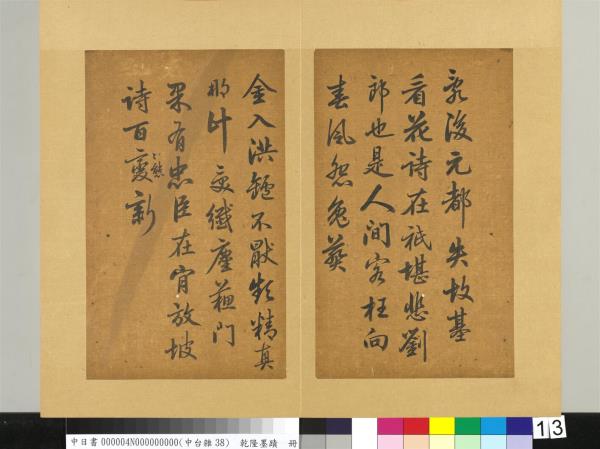 亂後元都失故基
看花詩在祇堪悲劉
郎也是人間客枉向
春風怨兔葵
金入洪鑪不厭頻精真
那計受纖塵蘇門
果有忠臣在肯放坡
詩百變態新
中日書 000004N000000000(中台雜 38) 乾隆墨蹟 冊
13